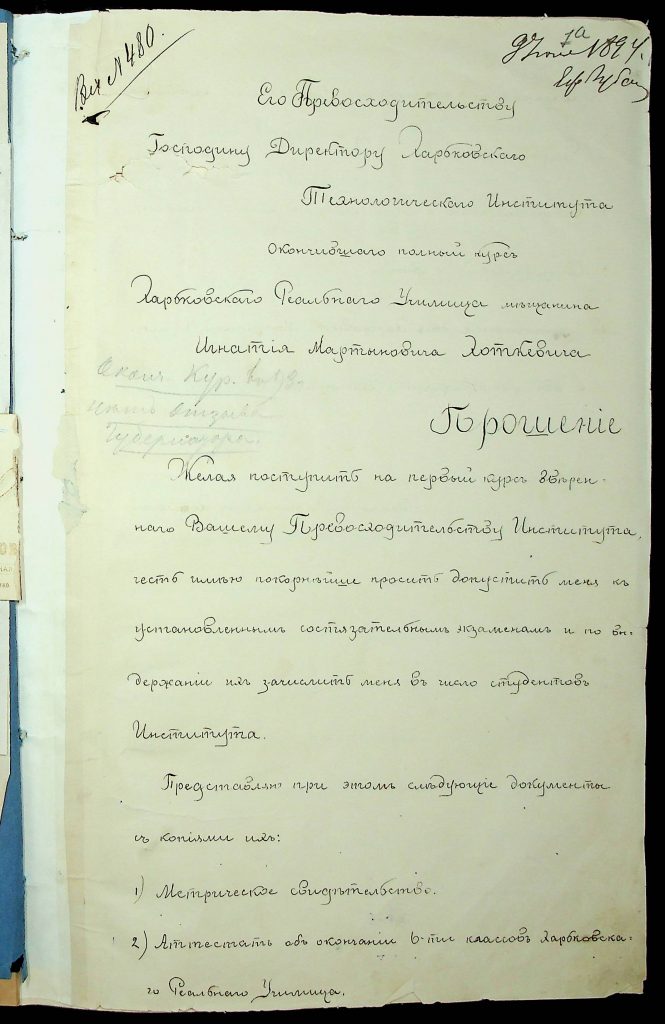 Вх № 480.
9 Июля 1894.
1а
Его Превосходительству
Господину Директору Харьковскаго
Технологическаго Института
окончившаго полный курсъ
Харьковскаго Реальнаго Училища мѣщанина
Игнатія Мартыновича Хоткевича
Оконч. Кур. въ 93.
нѣтъ отзыва
Губернатора.
Прошеніе
Желая поступить на первый курсъ ввѣрен-
наго Вашему Превосходительству Института,
честь имѣю покорнѣйше просить допустить меня къ
установленнымъ состязательнымъ экзаменамъ и по вы-
держаніи ихъ зачислить меня въ число студентовъ
Института.
Представляю при этомъ слѣдующіе документы
съ копіями ихъ:
1) Метрическое свидѣтельство.
2) Аттестатъ объ окончаніи 6-ти классовъ Харьковска-
го Реальнаго Училища.